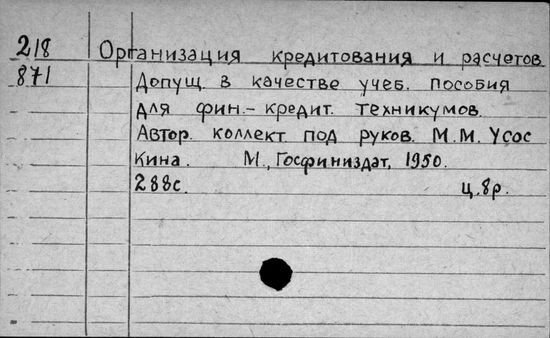 218 Организация кредитования и расчетов
871 Допущ. в качестве учеб. пособия
для фин.-кредит. техникумов.
Автор. коллект под руков. М.М. Усос
кина. М., Госфиниздат, 1950.
288с. ц. 8р.